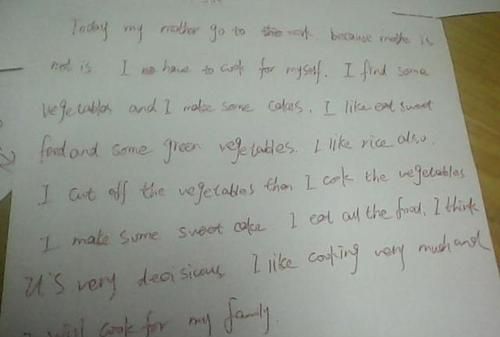 Today my mother go to the work. because mothe is
not is I have to cook for myself. I find some
vegetables and I make some cakes. I like eat sweet
food and some green vegetables. I like rice also.
I cut off the vegetables then I cook the vegetables
I make some sweet cake I eat all the food. I think
It's very decisious I like cooking very much and
I will cook for my family.